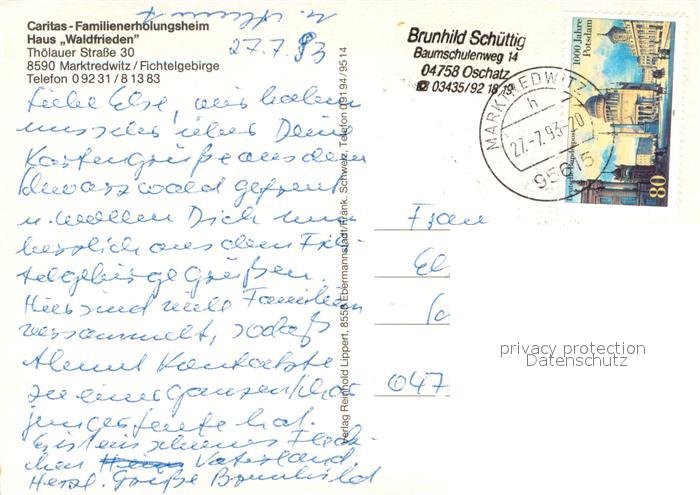 Caritas-Familienerholungsheim
Haus „Waldfrieden”
Thölauer Straße 30
8590 Marktredwitz/Fichtelgebirge
Telefon 09231/81383
27.7.93
Liebe Else, wir haben
uns sehr über Deine
Kartengrüße aus dem
Schwarzwald gefreut
u. wollen Dich nun
herzlich aus dem Fich-
telgebirge grüßen.
Hier sind viele Familien
versammelt, sodaß
Almut Kontakte
zu einer ganzen Schar
junger Leute hat.
Es ist ein schönes Fleck-
chen Vaterland.
Herzl. Grüße Brunhild
Verlag Reinhold Lippert, 8553 Ebermannstadt/Fränk. Schweiz, Telefon 09194/9514
Brunhild Schüttig
Baumschulenweg 14
04758 Oschatz
☎ 03435/92
1000 Jahre
Potsdam
Deutsche Bundespost
80
MARKTREDWITZ
h
27.-7.93-20
95615
Frau
El
047
privacy protection
Datenschutz